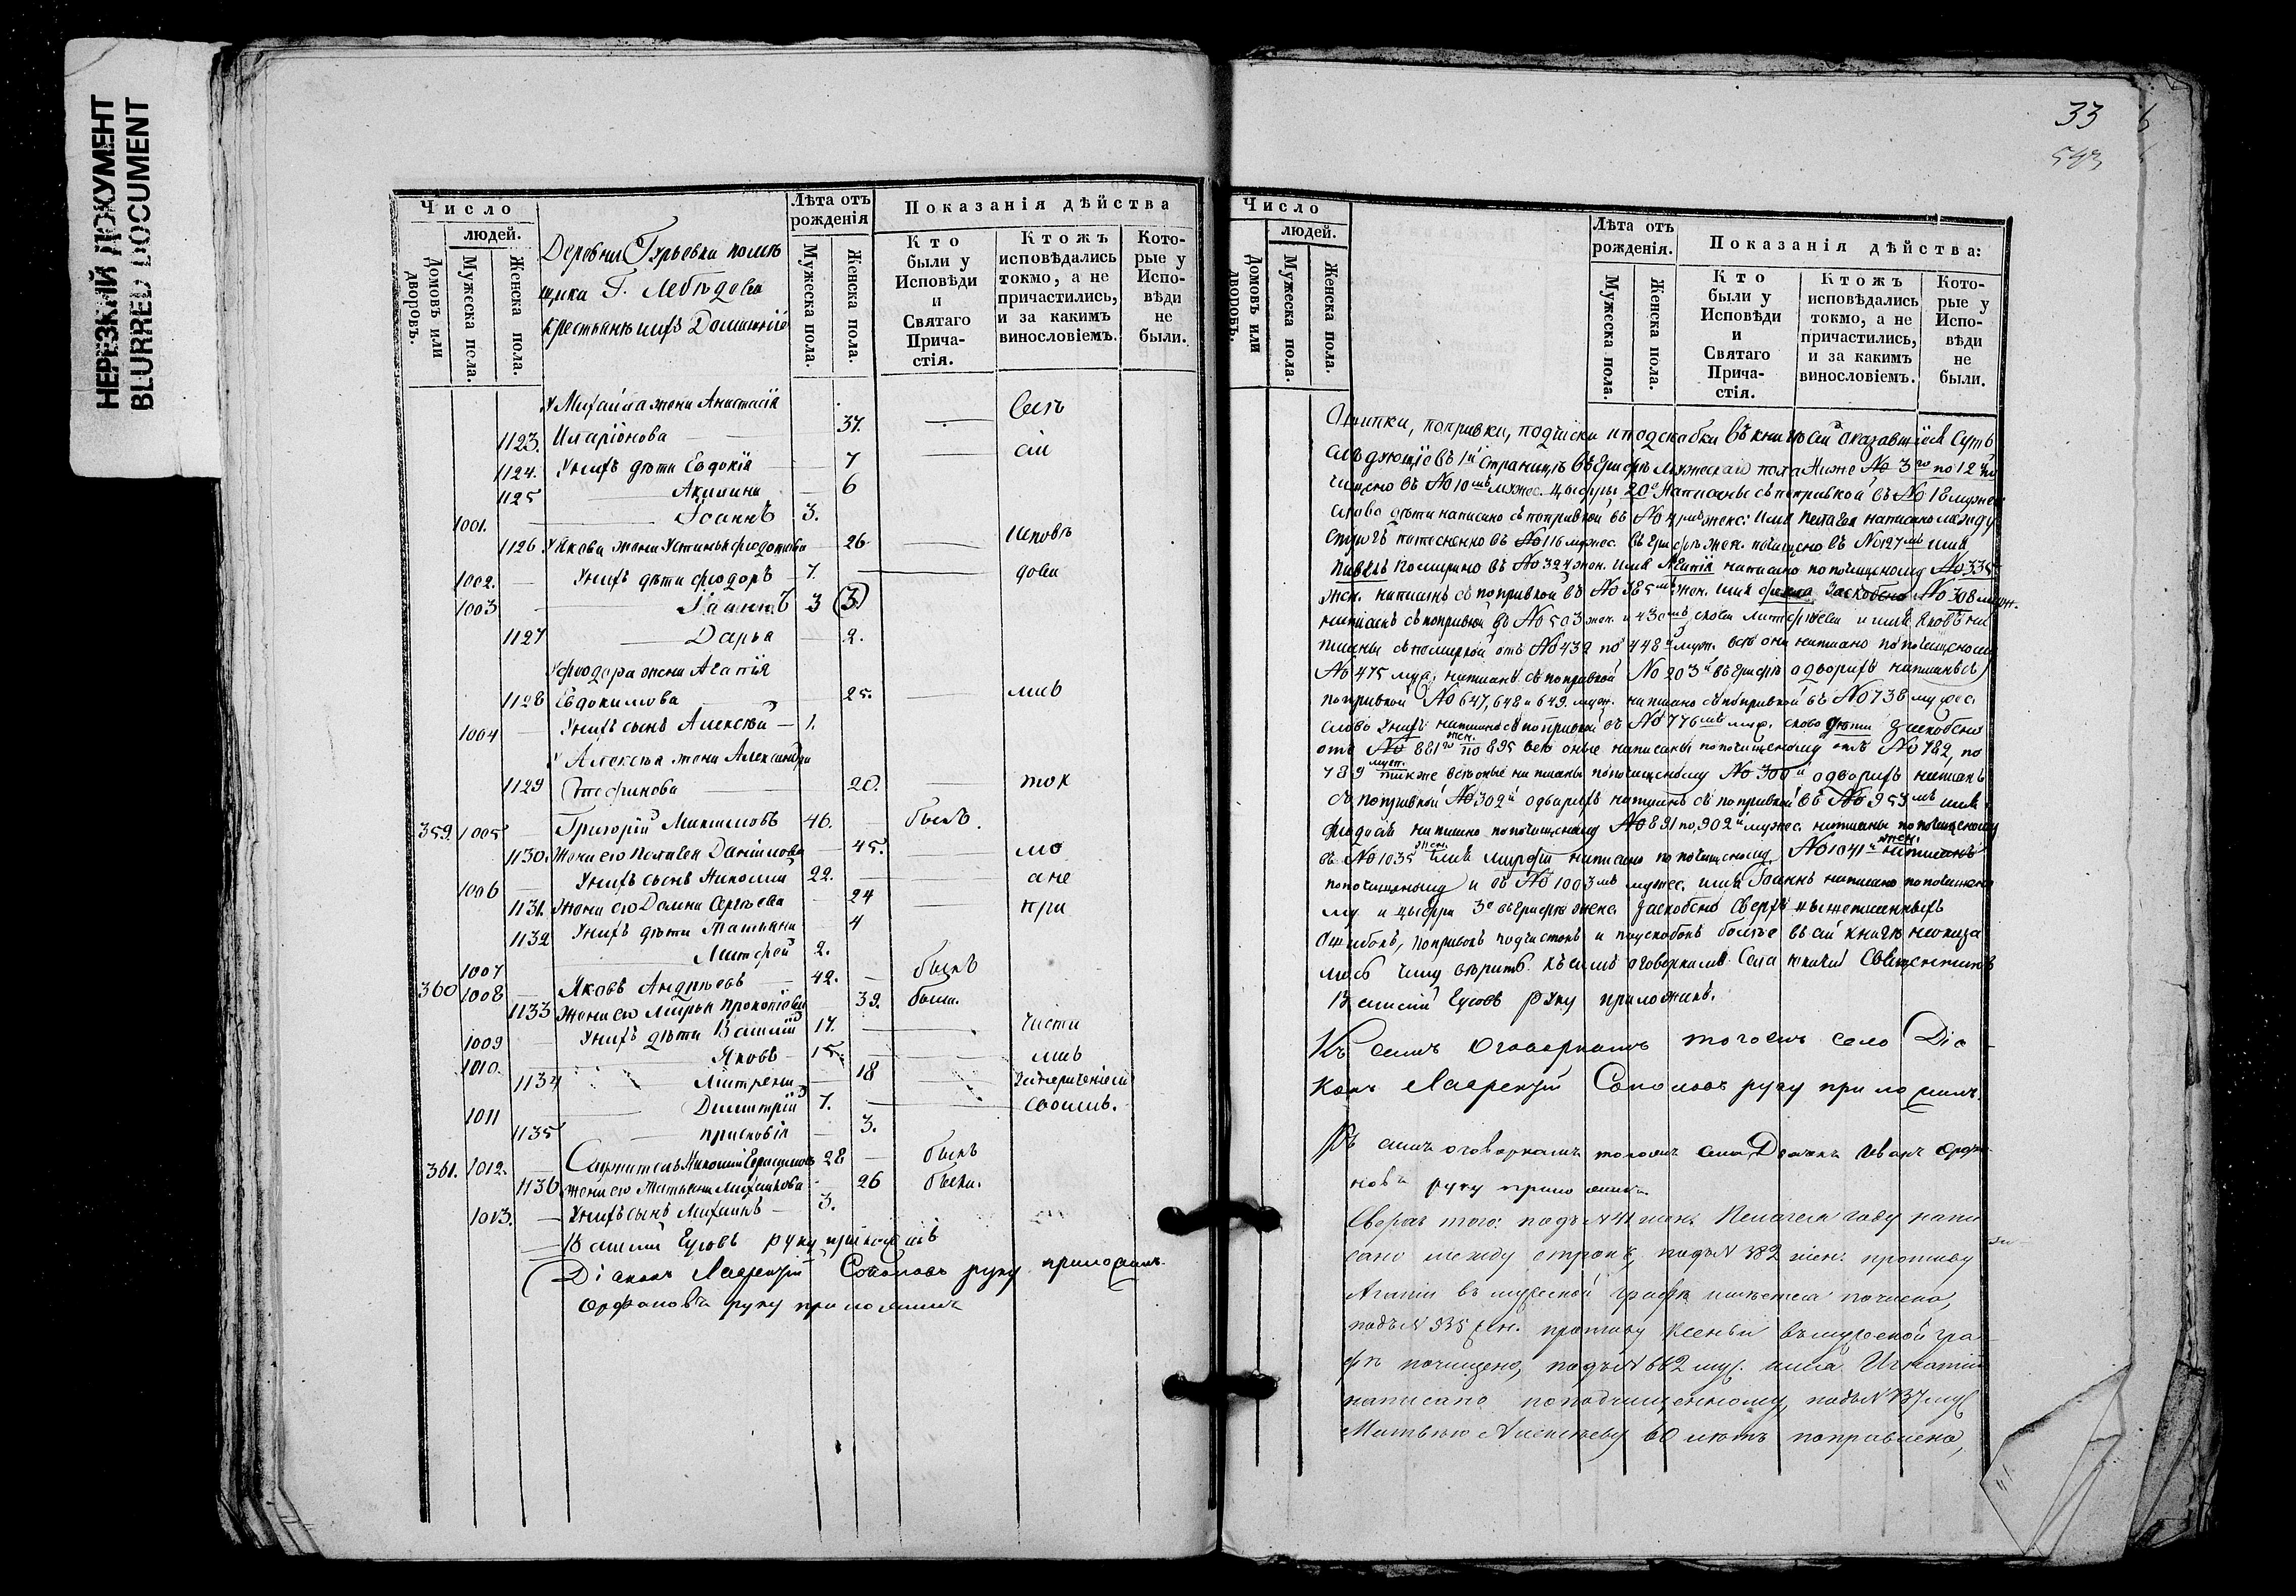 НЕРЕЗКИЙ ДОКУМЕНТ
BLURRED DOCUMENT
Число
людей.
Домовъ или дворовъ.
Мужеска пола.
Женска пола.
Деревни Гурьевки помѣ
щика Г. Лебѣдева
крестьяне ихъ Домашніе
Лѣта отъ рожденія
Мужеска пола.
Женска пола.
Показанія дѣйства
Кто были у Исповѣди и Святаго Причастія.
Ктожъ исповѣдались токмо, а не причастились, и за какимъ винословіемъ.
Которые у Исповѣди не были.
У Михаила жена Анастасія
1123. Иларіонова 37.
1124. У нихъ дѣти Евдокія 7
1125 Акилина 6
1001. Іоаннъ 3.
1126 У Якова жена Устинья Ѳедотова 26 исповѣ
1002. У нихъ дѣти Ѳеодоръ 7. дова
1003 Іоаннъ 3 (3)
1127 Дарья 2.
У Ѳеодора жена Агапія
1128 Евдокимова 25. лись
1004 У нихъ сынъ Алексѣй 1.
У Алексѣя жена Александра
1129 Стефанова 20. ток
359. 1005 Григорій Максимовъ 46. былъ.
1130. Жена его Пелагея Даніилова 45. мо
1006 У нихъ сынъ Николай 22. а не
1131. Жена его Домна Сергѣева 24 при
1132 У нихъ дѣти Татьяна 4
1007 Митрофан 2.
360 1008 Яковъ Андрѣевъ 42. былъ
1133 Жена его Марья Прокопіева 39. была.
1009 У нихъ дѣти Василій 17. части
1010. Яковъ 15. лись
1134 18
1011 Димитрій 7. своимъ.
1135 Прасковія 3.
361. 1012. Служитель Николай Герасимовъ 28 былъ
1136 жена его Татьяна Михайлова 26 была.
1013. У нихъ сынъ Михаилъ 3.
Василій руку приложилъ
Діаконъ Лаврентій Соколовъ руку приложилъ.
руку приложилъ
33
Число
людей.
Домовъ или дворовъ.
Мужеска пола.
Женска пола.
Лѣта отъ рожденія.
Мужеска пола.
Женска пола.
Показанія дѣйства:
Кто были у Исповѣди и Святаго Причастія.
Ктожъ исповѣдались токмо, а не причастились, и за какимъ винословіемъ.
Которые у Исповѣди не были.
Описки, поправки, подчистки и подскобки въ книгѣ сей оказавшіяся суть
слѣдующіе въ 1й страницѣ въ графѣ мужескаго пола ниже № 3го по 12й по
чищено въ № 10мъ мужес. цыфры 20 написаны съ поправкой въ № 18 мужес
слово дѣти написано съ поправкой въ № 41мъ женс: имя Пелагея написано между
строкъ потесненно въ № 116 мужес. въ графѣ жен. почищено въ № 127мъ имя
Павелъ помарано въ № 324 жен. имя Агапія написано по почищеному № 335й
жен. написанъ съ поправкой въ № 385мъ жен. имя Ѳекла заскоблено № 308 муж.
написанъ съ поправкой въ № 503 жен. и 430мъ слова Митрофаева и имя Яковъ на
писаны съ помаркой отъ № 432 по 448й муж. всѣ они написано по почищеному
№ 475 муж. написанъ съ поправкой № 203й въ графѣ о дворахъ написанъ съ
поправкой № 647, 648 и 649. муж. написано съ поправкой въ № 738 мужес.
слово У нихъ написано съ поправкой въ № 776мъ муж. слово дѣти заскоблено
отъ № 881го жен. по 895 всѣ оные написаны по почищеному отъ № 782, по
789 муж. также всѣ оные написаны по почищеному № 300й о дворахъ написанъ
съ поправкой № 302й о дворахъ написанъ съ поправкой въ № 953мъ имя
Ѳедосья написано по почищеному № 891 по 902й мужес. написаны по почищеному
въ № 1035 жен. имя Марфа написано по почищеному № 1041й жен. написанъ
по почищеному и въ № 1003мъ мужес. имя Іоаннъ написано по почищено
му и цыфра 3 въ графѣ женс. заскоблено Сверхъ вышеписанныхъ
ошибокъ, поправокъ подчистокъ и подскобокъ болѣе въ сей книгѣ не оказа
лось чему вѣрить. Къ симъ оговоркамъ Села Священникъ
Василій руку приложилъ.
Къ симъ оговоркамъ тогожъ села Діа
конъ Лаврентій Соколовъ руку приложилъ.
Къ симъ оговоркамъ тогожъ села Дьячекъ Иванъ Орфа
новъ руку приложилъ.
Сверхъ того: подъ № 41 женс. Пелагея году напи
сано между строкъ, подъ № 382 жен. противу
Агапіи въ мужской графѣ имѣется почистка,
подъ № 335 жен. противу Ксеньи въ мужеской гра
фѣ почищено, подъ № 662 муж. имя Игнатій
написано по подчищенному, подъ № 737 муж
Матвѣю Алексѣеву 60 лѣтъ поправлено,